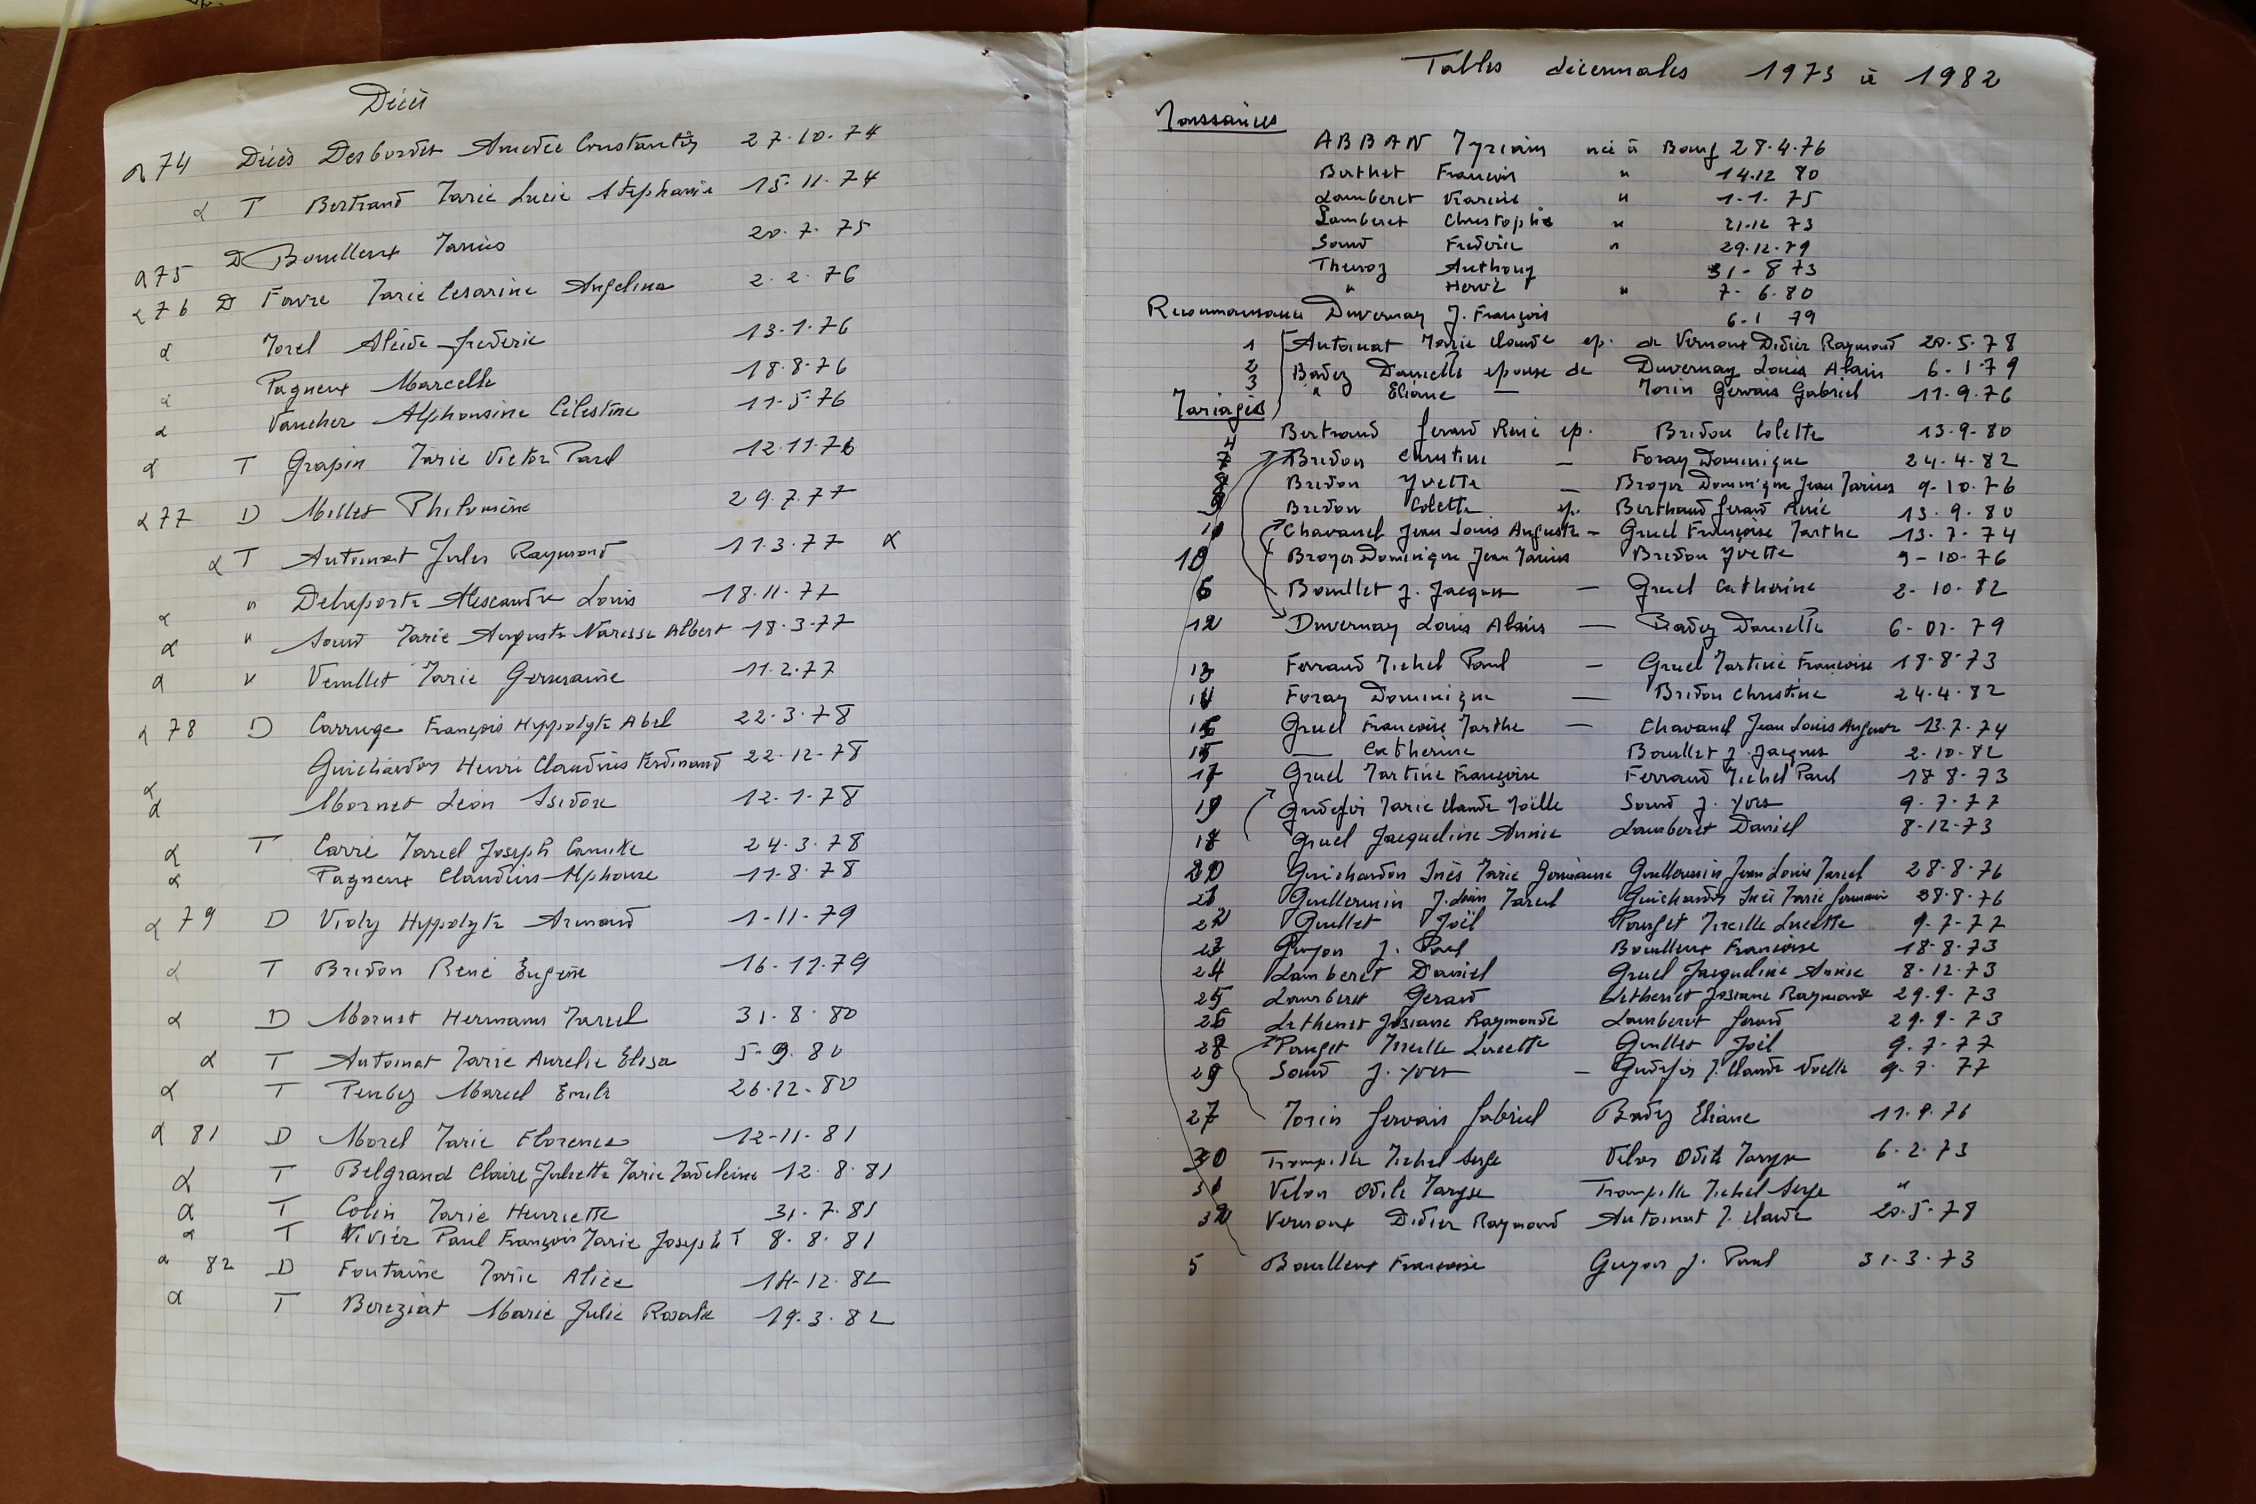 Décès
α 74 Décès Desbordes Amedée Constantin 27.10.74
α T Bertrand Marie Lucie Stéphanie 15.11.74
α 75 D Bouilloux Marius 20.7.75
α 76 D Favre Marie Cesarine Angelina 2.2.76
α Morel Aleide-frederic 13.1.76
α Pagneux Marcelle 18.8.76
α Vaucher Alphonsine Célestine 11-5-76
α T Grapin Marie Victor Paul 12.11.76
α 77 D Millet Philomène 29.7.77
α T Antoinat Jules Raymond 11.3.77 α
α " Delaporte Alexandre Louis 18.11.77
α " Sourd Marie Auguste Narcisse Albert 18.3.77
α " Veuillet Marie Germaine 11.2.77
α 78 D Carruge François Hyppolyte Abel 22.3.78
α Guichardon Henri Claudius Ferdinand 22.12.78
α Mornet Léon Isidore 12.1.78
α T Carré Marcel Joseph Camille 24.3.78
α Pagneux Claudius-Alphonse 11.8.78
α 79 D Violy Hyppolyte Armand 1-11-79
α T Bridon René Eugène 16-11.79
α D Mornet Hermann Marcel 31.8.80
α T Antoinat Marie Aurelie Elisa 5-9.80
α T Perbez Marcel Emile 26.12.80
α 81 D Morel Marie Florence 12-11-81
α T Belgrand Claire Juliette Marie Madeleine 12.8.81
α T Colin Marie Henriette 31.7.81
α T Vivier Paul François Marie Joseph T 8.8.81
α 82 D Fontaine Marie Alice 14-12.82
α T Bereziat Marie Julie Rosalie 19.3.82
Tables décennales 1973 à 1982
Naissances
ABBAN Myriam née à Bourg 28.4.76
Berthet François " 14.12 80
Lamberet Karine " 1-1.75
Lamberet Christophe " 21.12 73
Sourd Frédéric " 29.12.79
Thevoz Anthony 31-8 73
" Hervé " 7-6.80
Reconnaissance Duvernay J. François 6.1 79
1 Antoinat Marie Claude ep. de Vernoux Didier Raymond 20.5.78
2 Badez Danielle epouse de Duvernay Louis Alain 6-1-79
3 " Eliane — Morin Gervais Gabriel 11.9.76
Mariages
4 Bertrand Gerard René ep. Bridon Colette 13-9-80
7 Bridon Christine — Foray Dominique 24.4.82
8 Bridon Yvette — Broyer Dominique Jean Marius 9-10.76
9 Bridon Colette ep. Berthaud Gerard René 13.9.80
11 Chavanel Jean Louis Auguste - Gruel Françoise Marthe 13.7.74
10 Broyer Dominique Jean Marius Bridon Yvette 9-10-76
6 Bouillet J. Jacques — Gruel Catherine 2-10.82
12 Duvernay Louis Alain — Badez Danielle 6-01-79
13 Ferrand Michel Paul — Gruel Martine Françoise 18.8.73
14 Foray Dominique — Bridon Christine 24.4.82
16 Gruel Françoise Marthe — Chavanel Jean Louis Auguste 13.7.74
15 — Catherine Bouillet J. Jacques 2-10-82
17 Gruel Martine Françoise Ferrand Michel Paul 18 8.73
19 Gudefin Marie Claude Noëlle Sourd J. Yves 9.7.77
18 Gruel Jacqueline Annie Lamberet Daniel 8-12.73
20 Guichardon Inès Marie Germaine Guillermin Jean Louis Marcel 28.8.76
21 Guillermin J. Louis Marcel Guichardon Inès Marie Germaine 28.8.76
22 Guillet Joël Pouget Mireille Lucette 9.7-77
23 Guyon J. Paul Bouilloux Françoise 18.8.73
24 Lamberet Daniel Gruel Jacqueline Annie 8-12.73
25 Lamberet Gerard Lethenet Josiane Raymonde 29.9.73
26 Lethenet Josiane Raymonde Lamberet Gerard 29.9.73
28 Pouget Mireille Lucette Guillet Joël 9.7.77
29 Sourd J. Yves — Gudefin M. Claude Noelle 9.7.77
27 Morin Gervais Gabriel Badez Eliane 11.9.76
30 Trompille Michel Serge Velon Odile Maryse 6.2.73
31 Velon Odile Maryse Trompille Michel Serge "
32 Vernoux Didier Raymond Antoinat M. Claude 20.5-78
5 Bouilloux Françoise Guyon J. Paul 31.3.73